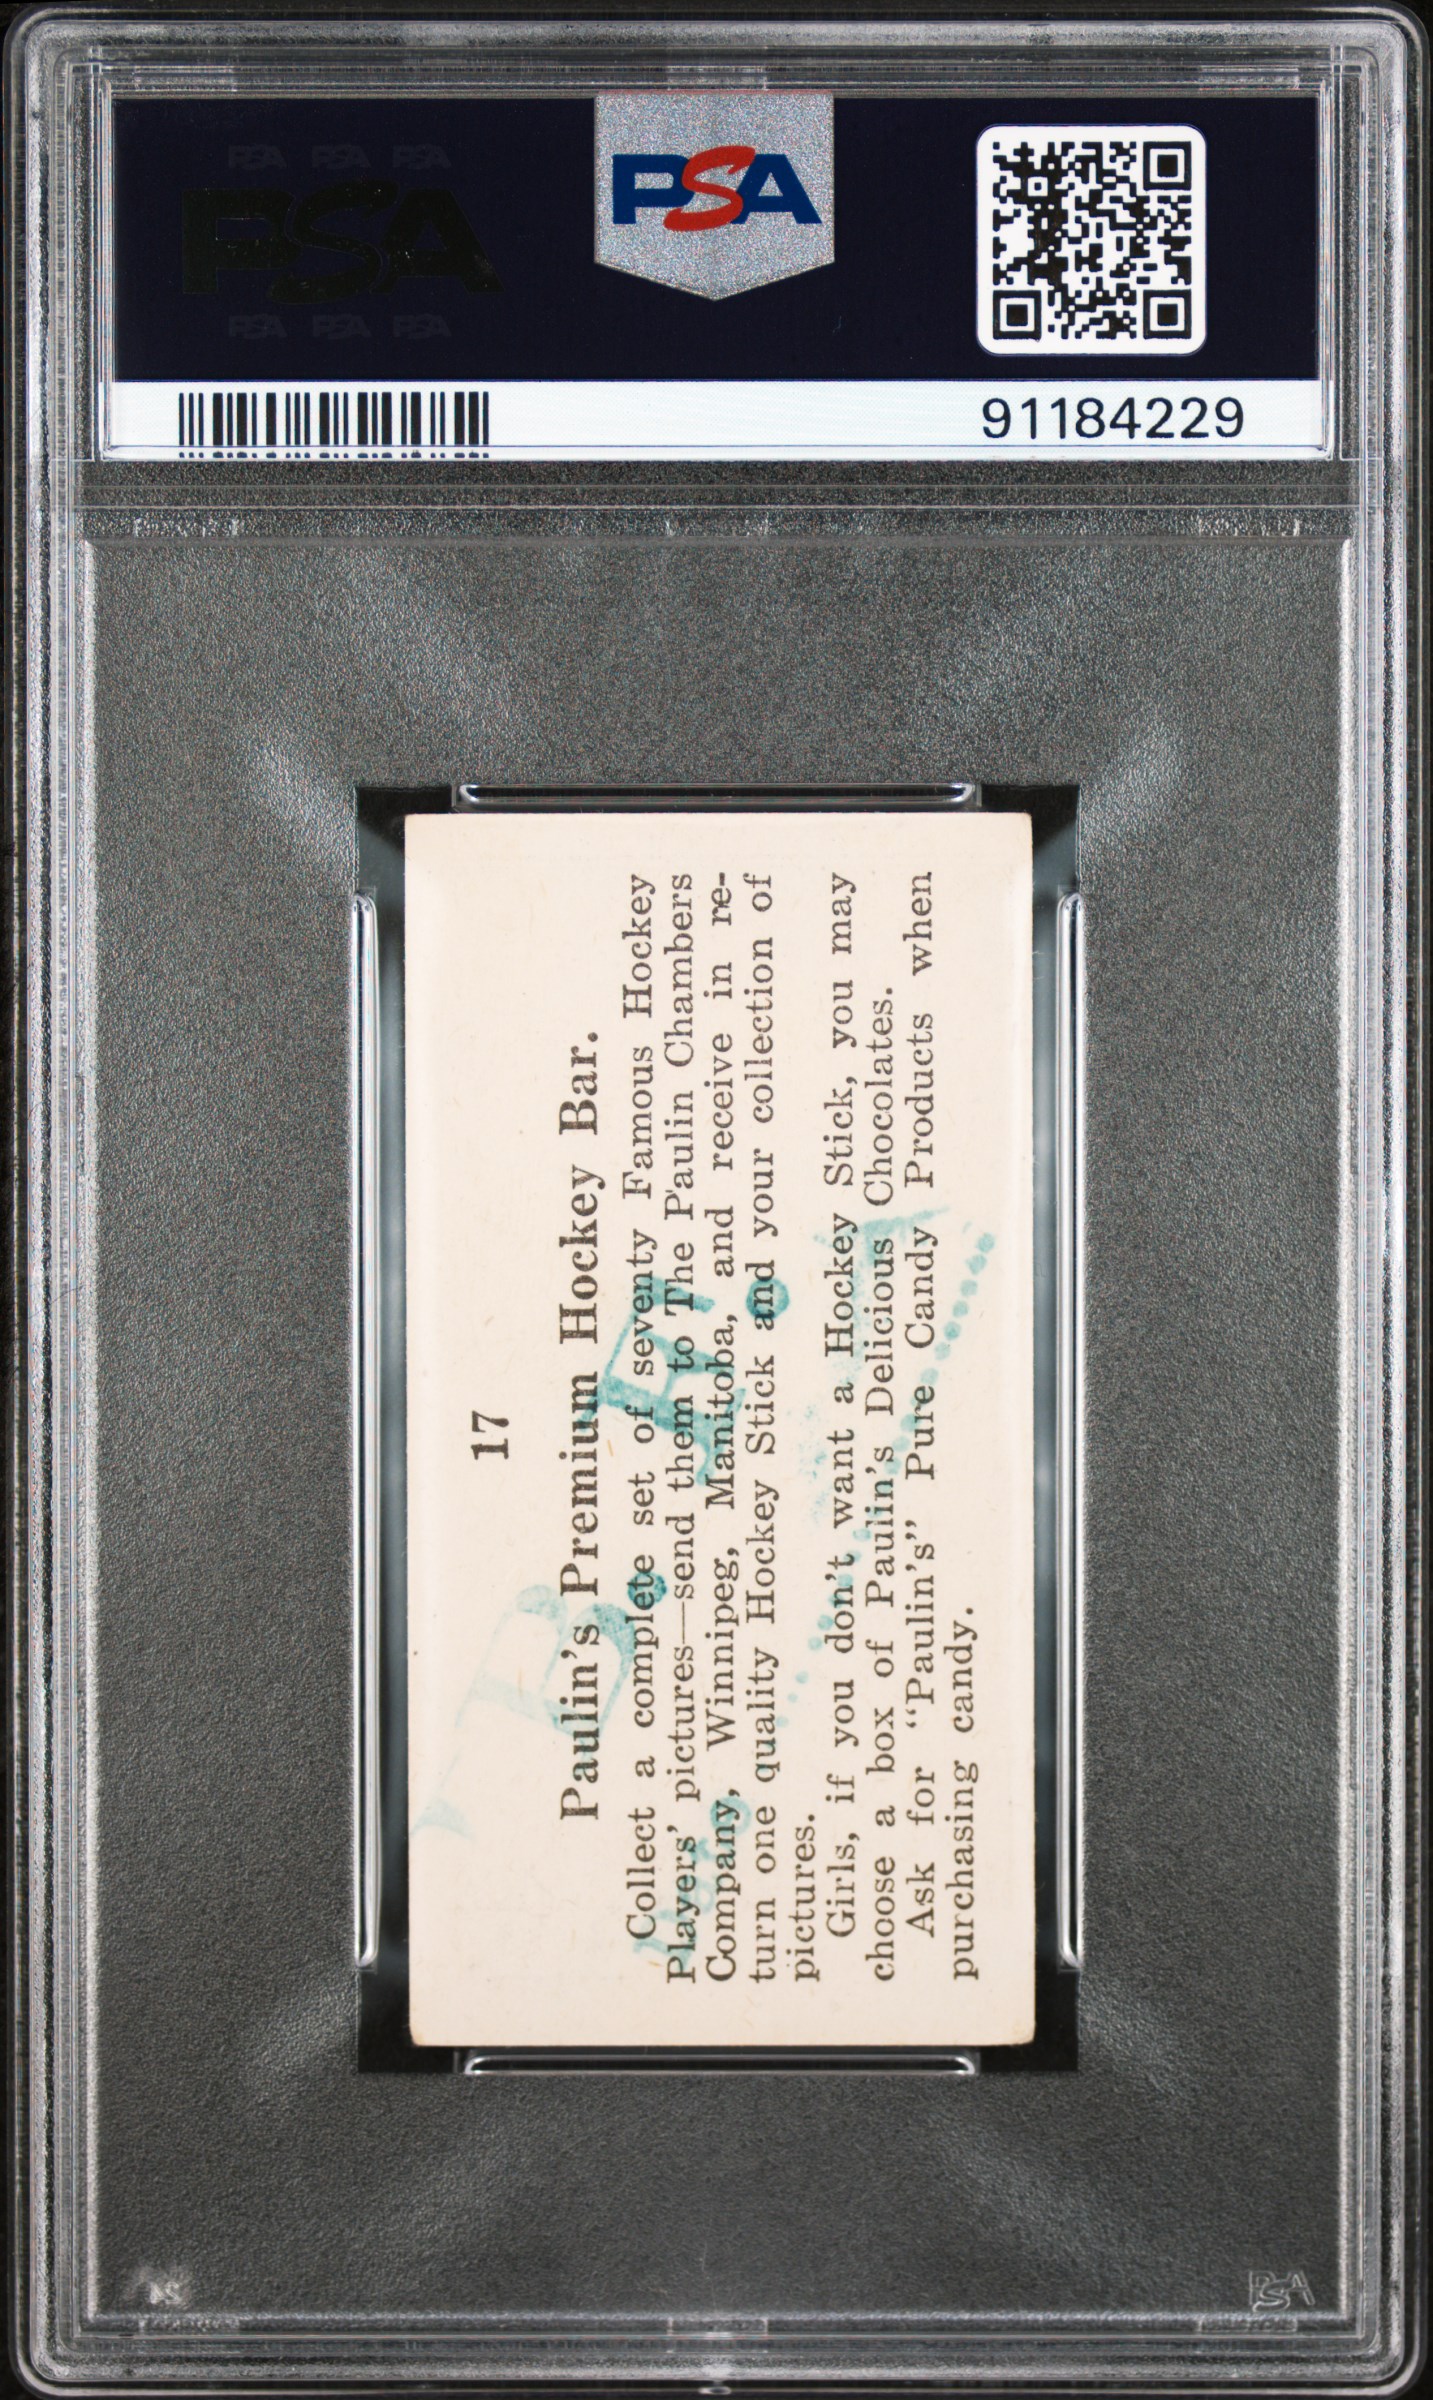 PSA PSA PSA
PSA
PSA PSA PSA
PSA
91184229
17
Paulin's Premium Hockey Bar.
Collect a complete set of seventy Famous Hockey
Players' pictures—send them to The Paulin Chambers
Company, Winnipeg, Manitoba, and receive in re-
turn one quality Hockey Stick and your collection of
pictures.
Girls, if you don't want a Hockey Stick, you may
choose a box of Paulin's Delicious Chocolates.
Ask for "Paulin's" Pure Candy Products when
purchasing candy.
PSA